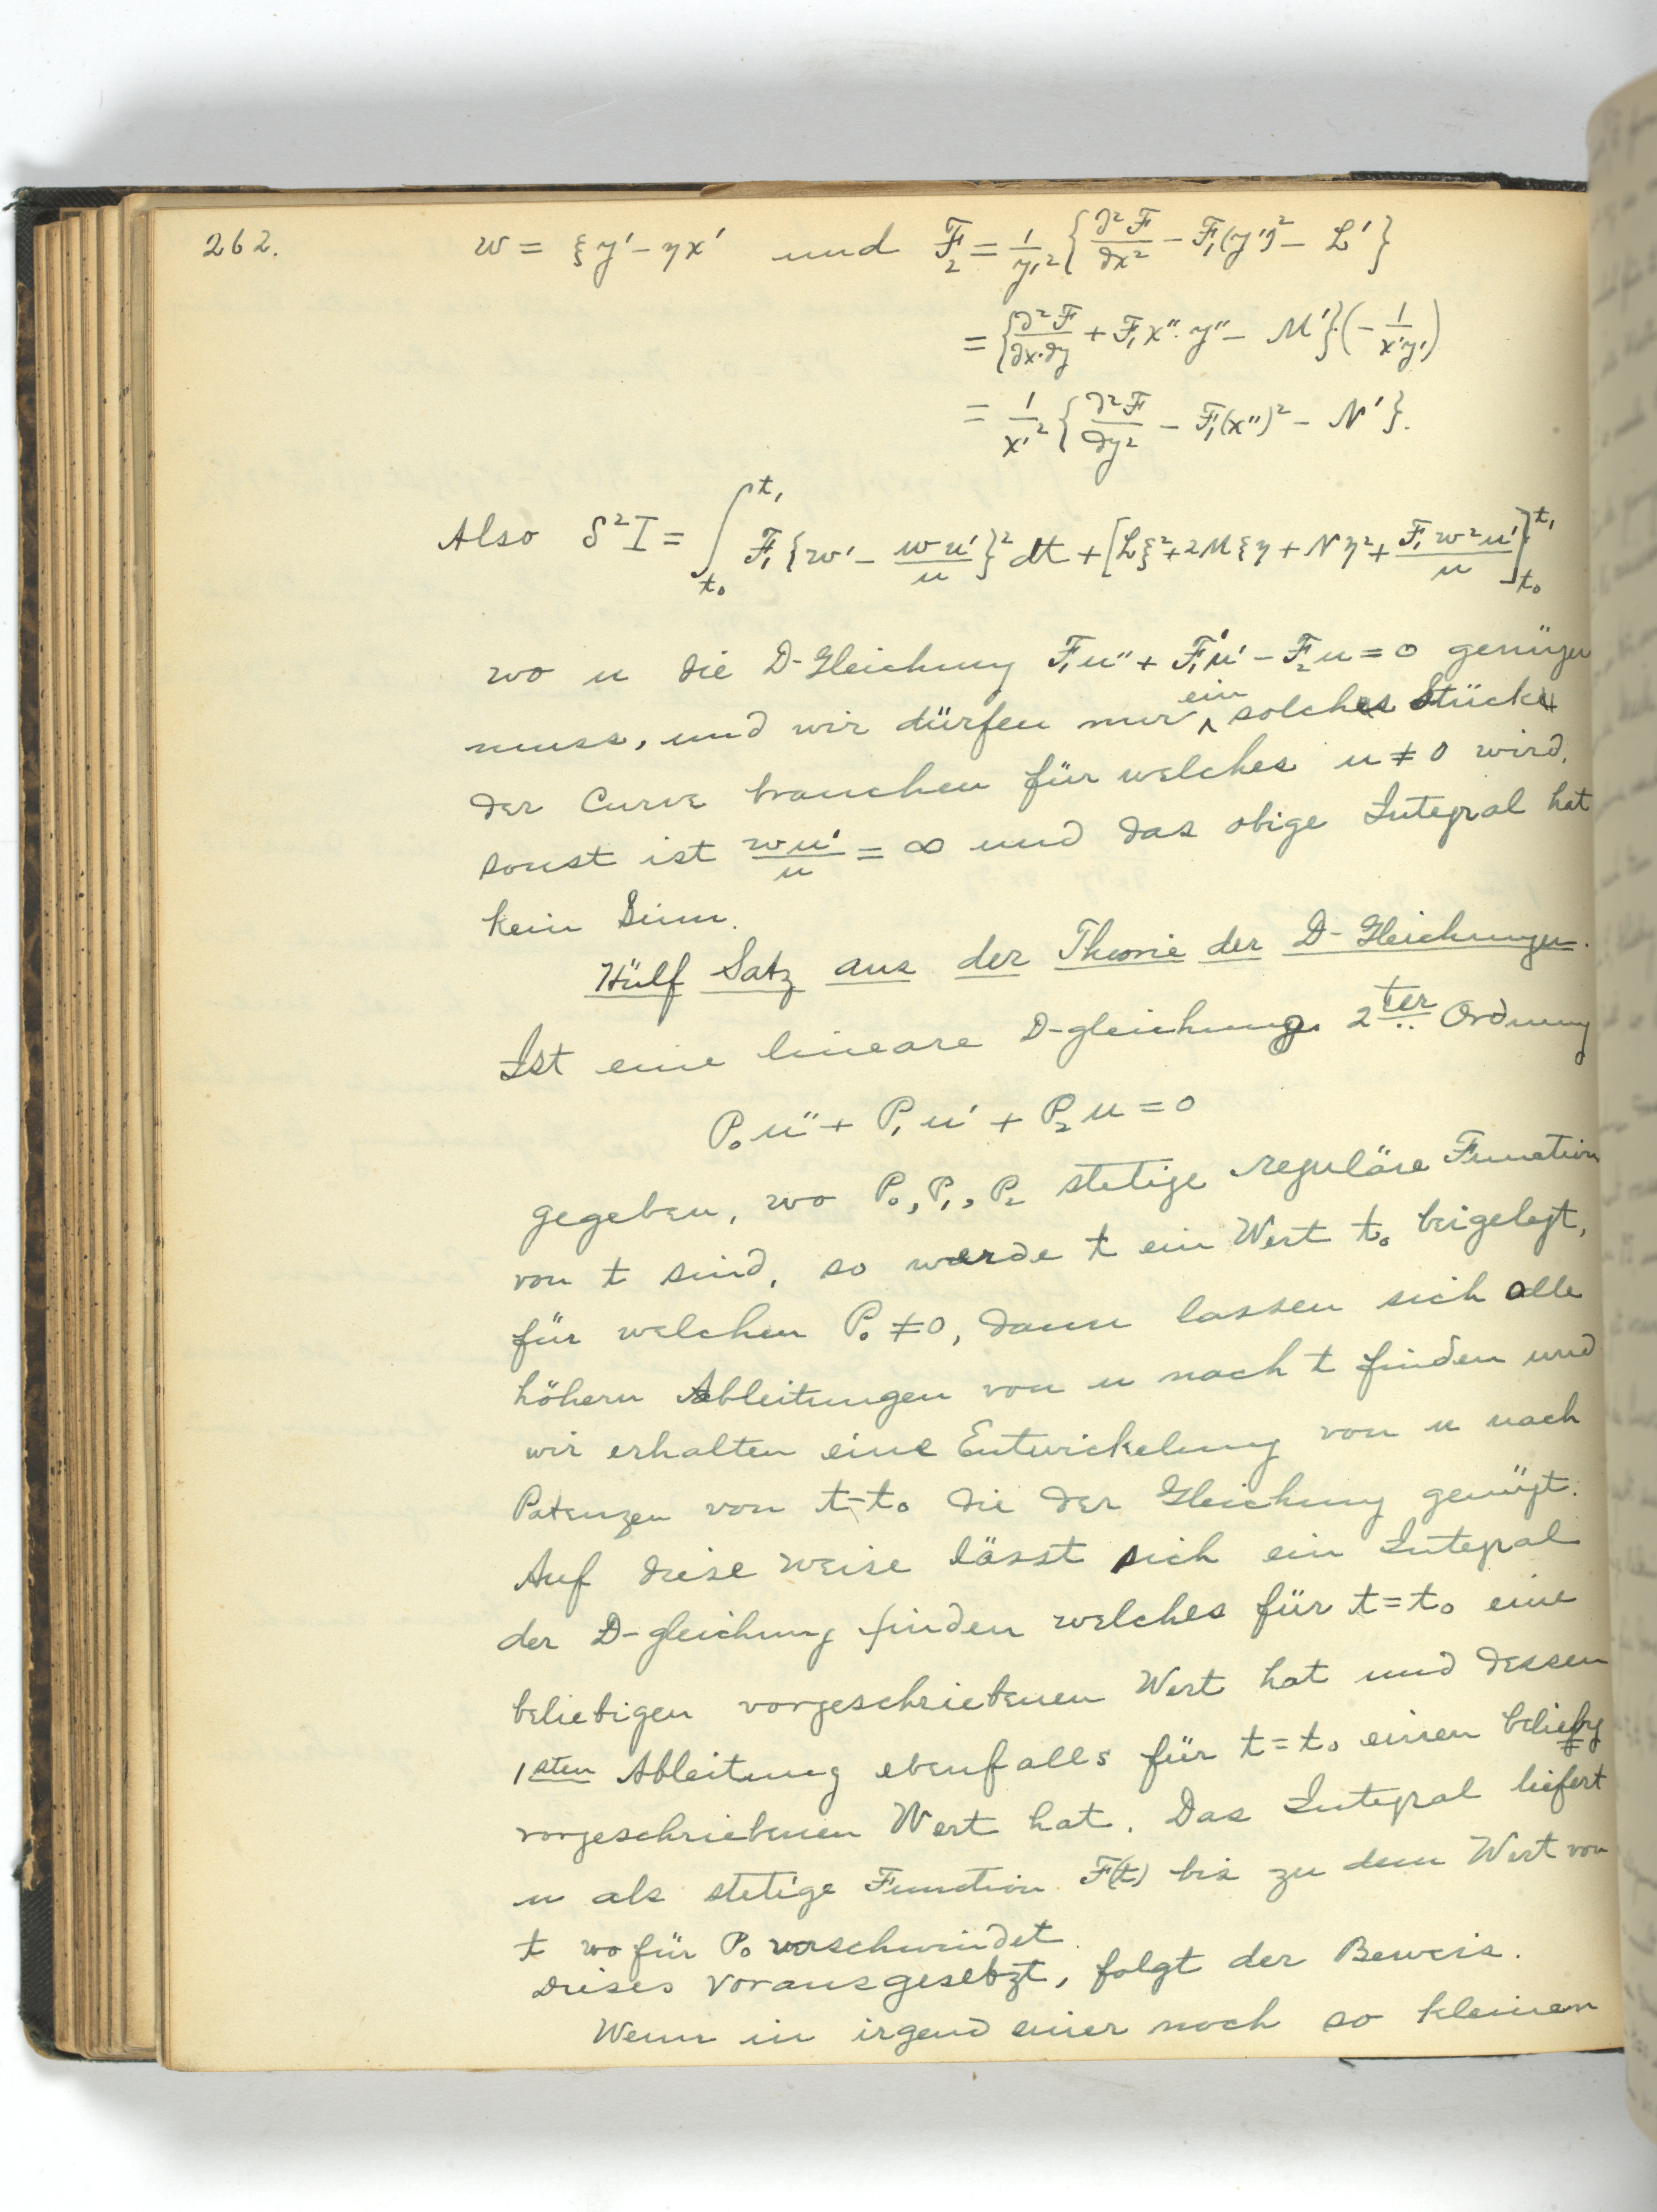 262. w = ξy' - ηx' und F₂ = 1/y'² { ∂²F/∂x² - F₁(y'')² - L' }
= { ∂²F/∂x·∂y + F₁x''·y'' - M' }·(- 1/x'y')
= 1/x'² { ∂²F/∂y² - F₁(x'')² - N' }.
Also δ²I = ∫_{t₀}^{t₁} F₁ { w' - wu'/u }² dt + [ Lξ² + 2Mξη + Nη² + F₁w²u'/u ]_{t₀}^{t₁}
wo u die D-Gleichung F₁u'' + F₁'u' - F₂u = 0 genügen
muss, und wir dürfen nur ein solches Stück
der Curve brauchen für welches u ≠ 0 wird,
sonst ist wu'/u = ∞ und das obige Integral hat
kein Sinn.
Hülf Satz aus der Theorie der D-Gleichungen.
Ist eine lineare D-gleichung 2ter Ordnung
P₀u'' + P₁u' + P₂u = 0
gegeben, wo P₀, P₁, P₂ stetige reguläre Function
von t sind, so werde t ein Wert t₀ beigelegt,
für welchen P₀ ≠ 0, dann lassen sich alle
höhern Ableitungen von u nach t finden und
wir erhalten eine Entwickelung von u nach
Potenzen von t-t₀ die der Gleichung genügt.
Auf diese weise lässt sich ein Integral
der D-gleichung finden welches für t = t₀ eine
beliebigen vorgeschriebenen Wert hat und dessen
1sten Ableitung ebenfalls für t = t₀ einen beliebg
vorgeschriebenen Wert hat. Das Integral liefert
u als stetige Function F(t) bis zu dem Wert von
t wo für P₀ verschwindet.
Dieses vorausgesetzt, folgt der Beweis.
Wenn in irgend einer noch so kleinen